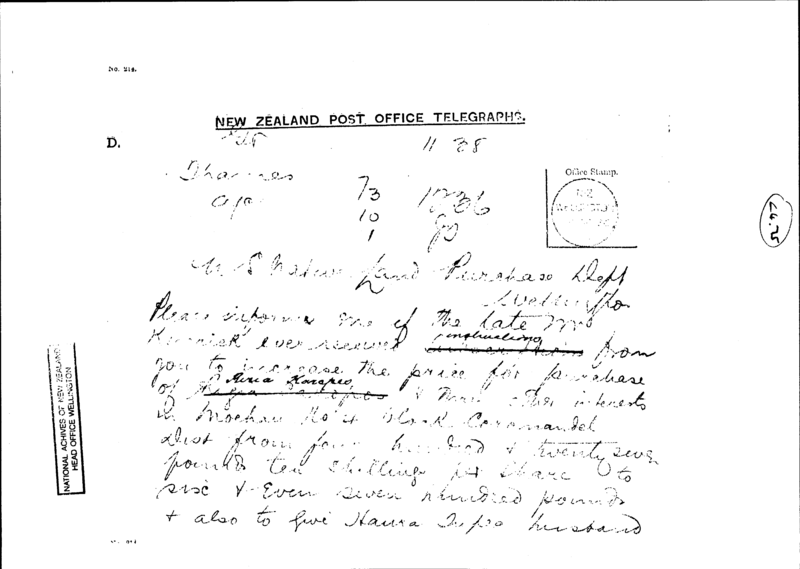 No. 218.
NEW ZEALAND POST OFFICE TELEGRAPHS.
D.
11 38
Thames
73 1236
10
1
Office Stamp.
N.Z.
Land Purchase Dept
Wellington
Please inform me if the late Mrs
ever received instructions from
you to increase the price for purchase
of Airia Karepe & their other interests
in Moehau No 4 Block Coromandel
Dist from four hundred & twenty seven
pounds ten shillings per share to
six & even seven hundred pounds
& also to give husband
NATIONAL ACHIVES OF NEW ZEALAND
HEAD OFFICE WELLINGTON